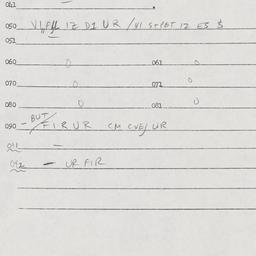 041
050 IZ D1 U R / VI IZ E3 $
051
060 0 061 0
070 0 071 0
080 0 081 0
090 - BUT / FIR UR CM CVE/ UR
011 -
- UR FIR